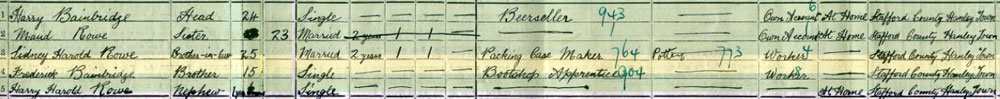 1 Harry Bainbridge Head 24 Single — — — Beerseller 943 — — Own Account 6 At Home Stafford County Hanley Town
2 Maud Rowe Sister 23 Married 2 years 1 1 — — — Own Account At Home Stafford County Hanley Town
3 Sidney Harold Rowe Brother-in-law 25 Married 2 years 1 1 — Packing Case Maker 764 Potters 773 Worker 4 — Stafford County Hanley Town
4 Frederick Bainbridge Brother 15 Single — — Bootshop Apprentice 904 — Worker — Stafford County Hanley Town
5 Harry Harold Rowe Nephew Single — — — — — At Home Stafford County Hanley Town